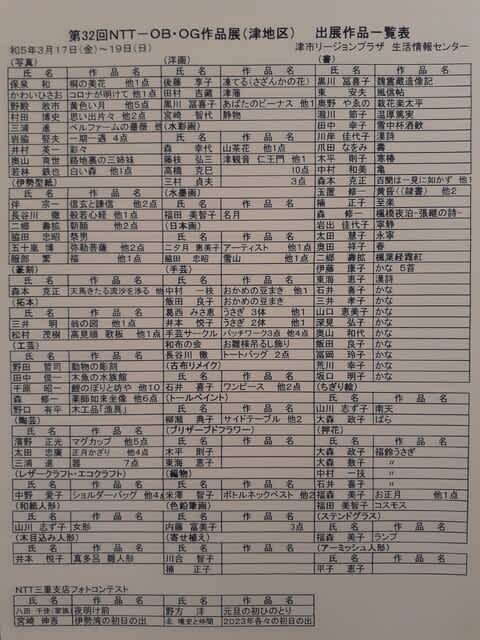 第32回NTT－OB・OG作品展(津地区)　出展作品一覧表
和5年3月17日(金)～19日(日)
津市リージョンプラザ 生活情報センター
(写真)
氏 名 作 品 名
保泉 和 桐の美花 他1点
かわいひさお コロナが明けて 他1点
野殿 敦市 黄色い月 他5点
村田 博史 思い出片々 他2点
三浦 進 ベルファームの薔薇 他
岩脇 堅夫 一期一会 他4点
井村 英一 彩々
奥山 育世 路地裏の三姉妹
若林 鉄也 白い森 他1点
(伊勢型紙)
氏 名 作 品 名
伴 宗一 信玄と謙信 他2点
長谷川 徹 般若心経 他1点
二郷 壽拡 朝顔 他2点
脇田 忠昭 祭男
五十嵐 博 弥勒菩薩 他2点
服部 繁 福 他1点
(篆刻)
氏 名 作 品 名
森本 克正 天馬きたる流沙を渉る 他
(拓本)
氏 名 作 品 名
三井 明 翁の図 他1点
松村 茂樹 高見順 歌板 他1点
(工芸)
氏 名 作 品 名
野田 哲司 動物の彫刻
田中 俊一 木魚の水族館
平原 昭一 鯉のぼりと坊や 他10
森 修一 薬師如来坐像 他6点
野口 有平 木工品「漁具」
(陶芸)
氏 名 作 品 名
濱野 正光 マグカップ 他5点
太田 忠廣 正月かざり 他4点
三浦 進 器 7点
(レザークラフト・エコクラフト)
氏 名 作 品 名
中野 愛子 ショルダーバッグ 他4
(和紙人形)
氏 名 作 品 名
山川 志ず子 女形
(木目込み人形)
氏 名 作 品 名
井本 悦子 真多呂 雛人形
(洋画)
氏 名 作 品 名
後藤 享子 凍てる(さざんかの花)
田村 吉蔵 津藩
黒川 冨喜子 あばたのビーナス 他1
宮崎 智代 静物
(水彩画)
氏 名 作 品 名
森 幸代 山茶花 他1点
藤枝 弘三 津観音 仁王門 他1
高橋 克巳 10点
三村 貞夫 3点
(水墨画)
氏 名 作 品 名
福田 美智子 名月
(日本画)
氏 名 作 品 名
二タ月 恵美子 アーティスト 他1
脇田 忠昭 雪山 他1点
(手芸)
氏 名 作 品 名
中村 一枝 おかめの豆まき 他1
飯田 良子 おかめの豆まき
葛西 みさ恵 うさぎ 3体 他1
井本 悦子 うさぎ 2体 他1
手芸サークル パッチワーク3点 他4点
和布の会 お雛様吊るし飾り
長谷川 徹 トートバッグ 2点
(古布リメイク)
氏 名 作 品 名
石井 喜子 ワンピース 他2点
(トールペイント)
氏 名 作 品 名
柳瀬 典子 サイドテーブル 他2
(プリザーブドフラワー)
氏 名 作 品 名
木平 則子
東海 恵子
(編物)
氏 名 作 品 名
米澤 智子 ボトルネックベスト 他2
(色鉛筆画)
氏 名 作 品 名
内藤 富美子 3点
(寄せ植え)
氏 名 作 品 名
川合 智子
楠 正子
(書)
氏 名 作 品 名
黒川 冨喜子 魏霊蔵造像記
東 安夫 風信帖
奥野 やゑの 栽花楽太平
湖川 節子 温厚篤実
田中 幸子 雪中杯酒歓
川岸 佳代子 漢詩
爪田 なをみ 壽
木平 則子 寒椿
中村 和美 亀
森本 克正 百聞は一見に如かず 他
玉置 修一 黄昏((隷書) 他2
楠 正子 至楽
森 修一 楓橋夜泊-張継の詩-
岩出 佳代子 寧静
太田 慧子 永寧
奥田 祥子 春
二郷 壽拡 楓葉経霜紅
伊藤 康子 かな 5首
東海 恵子 漢詩
石井 喜子 かな
三井 孝子 かな
山口 恵美子 かな
深見 弘子 かな
奥山 和代 かな
飯田 良子 かな
冨岡 玲子 かな
荒川 幸子 かな
坂口 明子 かな
(ちぎり絵)
氏 名 作 品 名
山川 志ず子 南天
大森 政子 ばら
(押花)
氏 名 作 品 名
大森 政子 福鈴うさぎ
大森 数子 〃
中村 一枝 〃
石井 喜子 〃
福森 美子 お正月 他1点
福田 美智子 コスモス
(ステンドグラス)
氏 名 作 品 名
福森 美子 ランプ
(アーミッシュ人形)
氏 名 作 品 名
平子 恵子
NTT三重支店フォトコンテスト
氏 名 作 品 名 氏 名 作 品 名
八田 千佳(家族) 夜明け前 野方 洋 元旦の初ひのとり
宮崎 伸吾 伊勢湾の初日の出 2023年各々の初日の出